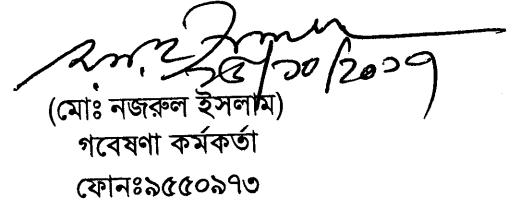 ২৫/১০/২০১৭
(মোঃ নজরুল ইসলাম)
গবেষণা কর্মকর্তা
ফোনঃ৯৫৫০৯৭৩